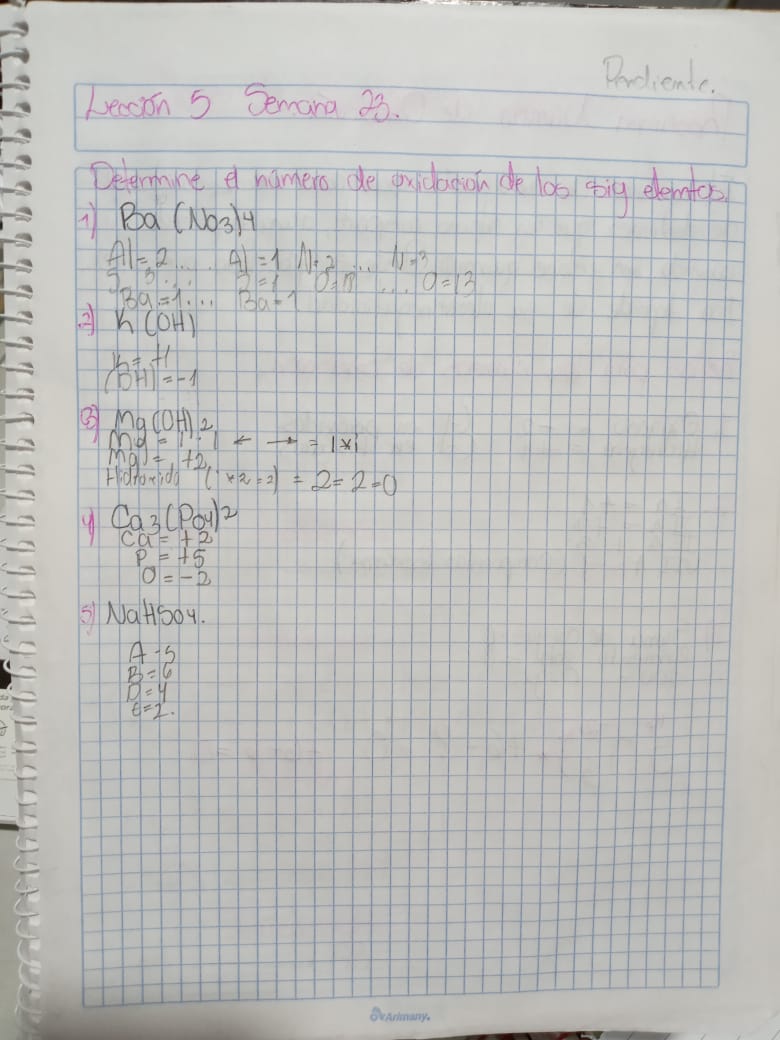 Pendiente.
Lección 5 Semana 23.
Determine el número de oxidación de los sig elemtos.
1) Ba (No3)4
Al=2 .... Al=1 N=2 ... N=3
3 ... =1 ... O=13
Ba=1... Ba=1
2) K (OH)
K = +1
(OH) = -1
3) Mg(OH)2
Mg = 1 ← → = 1x1
Mg = +2
Hidroxido ( x2=2) = 2=2=0
4) Ca3(Po4)2
Ca = +2
P = +5
O = -2
5) NaHSO4.
A-5
B=6
D=4
E=2.
Arimany.